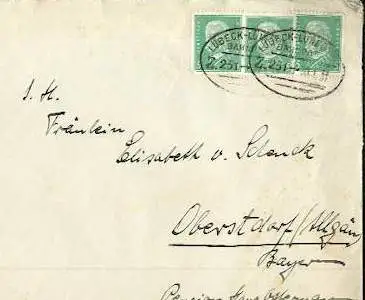 LÜBECK-LÜ
BAHN
Z.251
LÜBECK-LÜ
Z.251
S. H.
Fräulein
Elisabeth v. Schenck
Oberstdorf/Allgäu
Bayern
Pension Haus